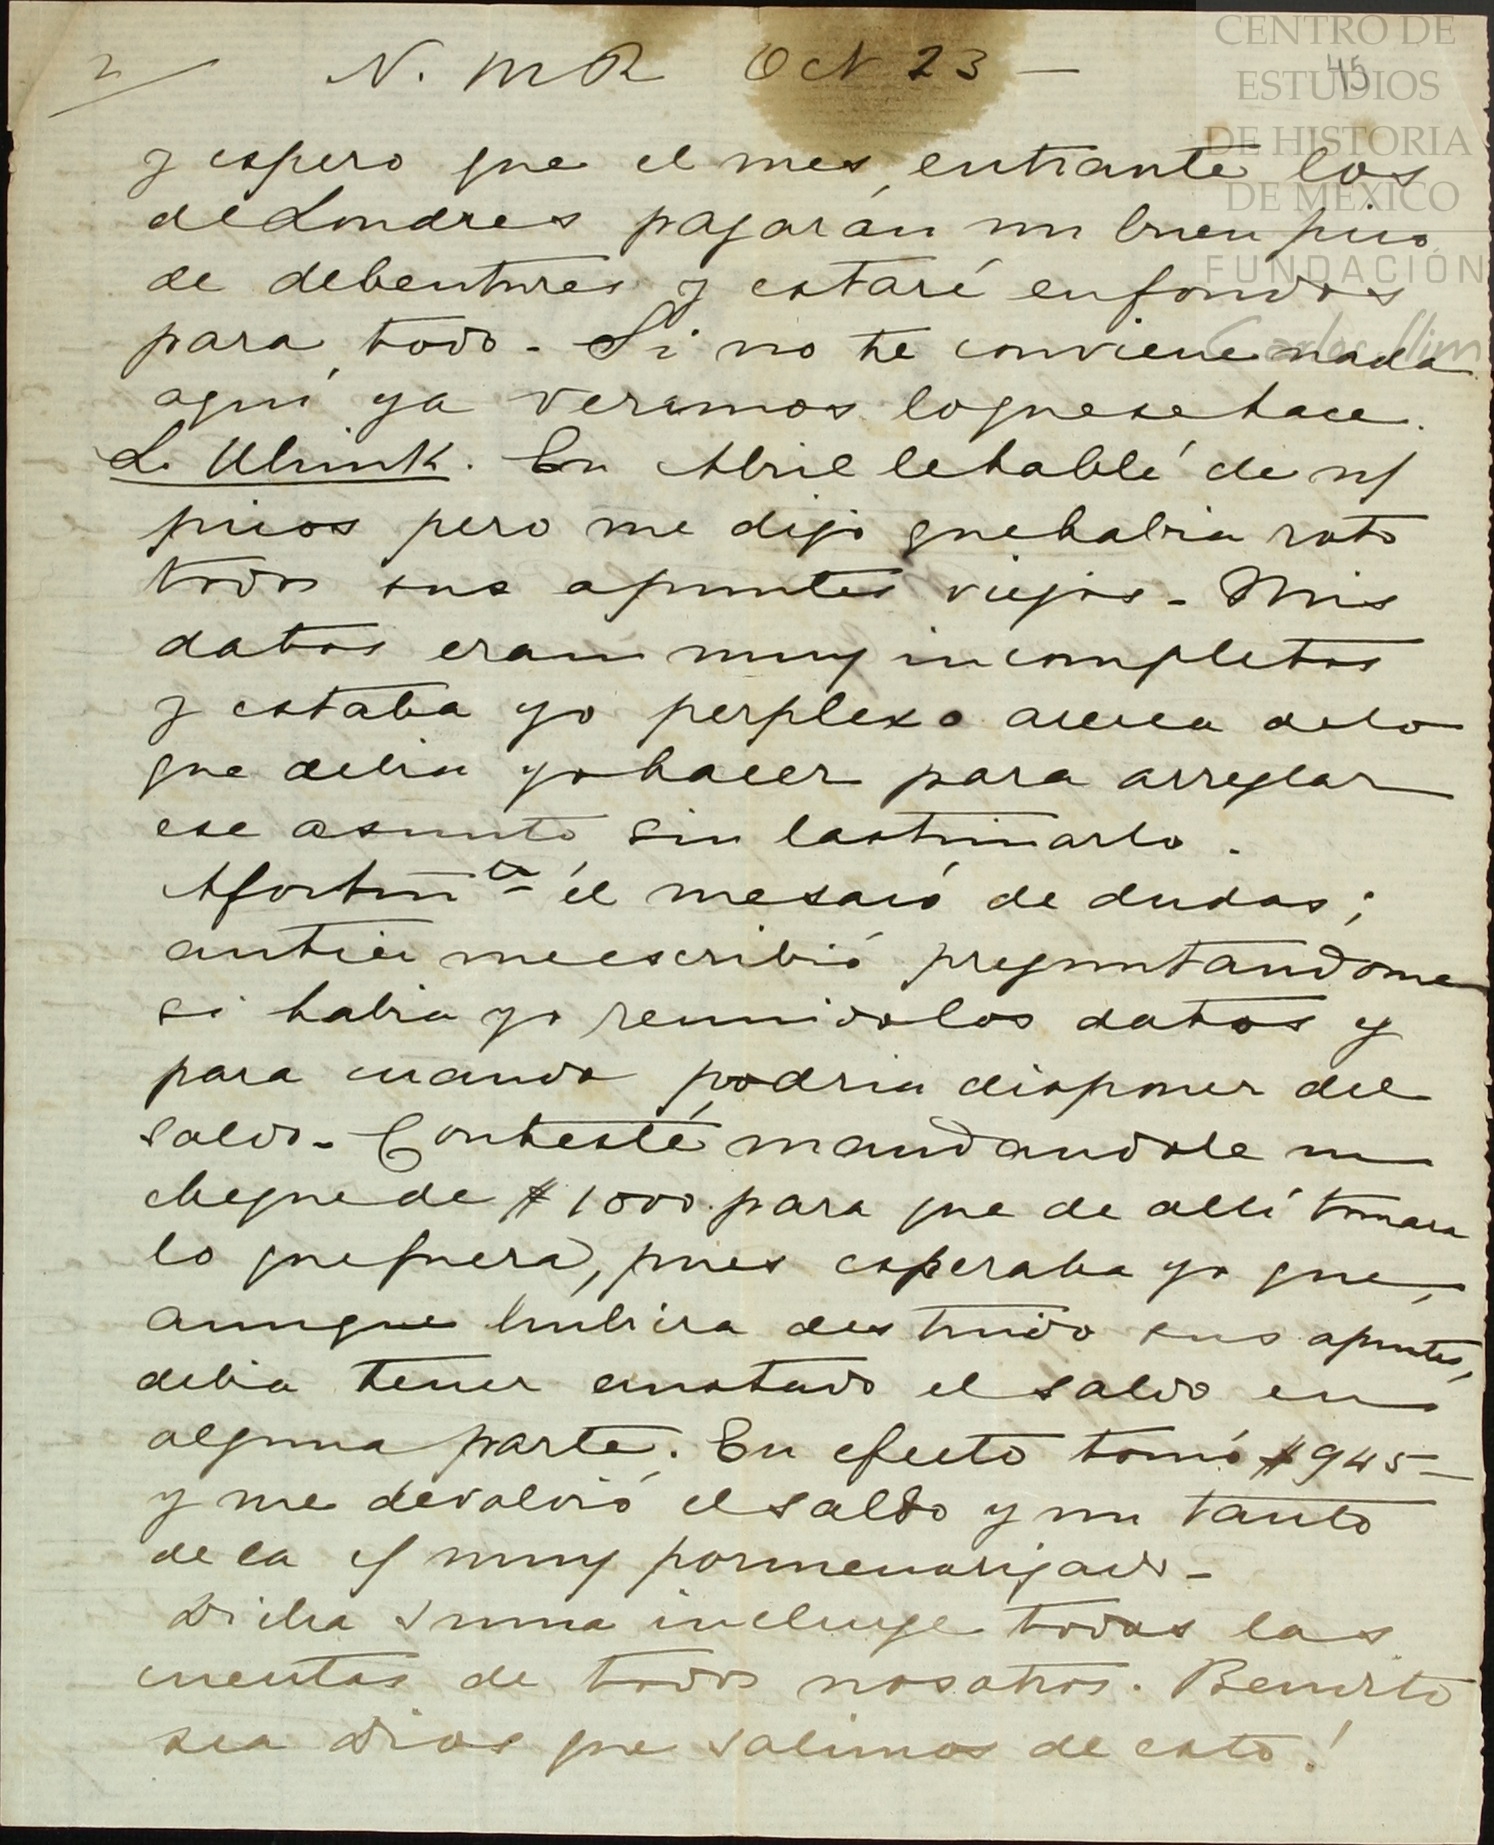 2/ N. M R Oct 23 —
45
CENTRO DE
ESTUDIOS
DE HISTORIA
DE MÉXICO
FUNDACIÓN
Carlos Slim
y espero que el mes entrante los
de Londres pagarán un buen pico
de debentures y estaré en fondos
para todo - Si no te conviene nada
aquí ya veremos lo que se hace.
L. En Abril le hablé de n/
picos pero me dijo que habia roto
todos sus apuntes viejos - Mis
datos eran muy incompletos
y estaba yo perplexo acerca de lo
que debia yo hacer para arreglar
ese asunto sin lastimarlo.
Afortun te él me sacó de dudas;
antier me escribió preguntandome
si habia yo reunido los datos y
para cuando podria disponer del
saldo - Contesté mandandole un
cheque de $1000. para que de allí tomara
lo que fuera, pues esperaba yo que,
aunque hubiera destruido sus apuntes,
debia tener anotado el saldo en
alguna parte. En efecto tomó $945 —
y me devolvió el saldo y un tanto
de la c/ muy pormenorizado -
Dicha suma incluye todas las
cuentas de todos nosotros. Bendito
sea Dios que salimos de esto!